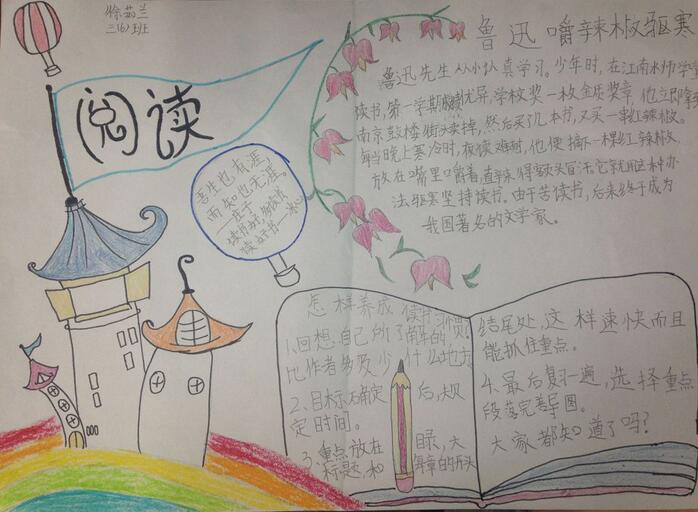 徐茹兰
三(6)班
阅读
吾生也有涯,
而知也无涯。
——庄子
读书好,多读书,
读好书。——冰心
鲁迅嚼辣椒驱寒
鲁迅先生从小认真学习。少年时,在江南水师学堂
读书,第一学期成绩优异,学校奖一枚金质奖章,他立即拿到
南京鼓楼街头卖掉,然后买了几本书,又买一串红辣椒。
每当晚上寒冷时,夜读难耐,他便摘一棵红辣椒,
放在嘴里嚼着,直辣得额头冒汗,它就用这种办
法驱寒坚持读书。由于苦读书,后来终于成为
我国著名的文学家。
怎样养成读书习惯?
1、回想自己所了解的,
比作者多及少什么地方
2、目标确定后,规
定时间。
3、重点放在目录,大
标题和 章的开头
结尾处,这样速快而且
能抓住重点。
4、最后复习一遍,选择重点
段落完善导图。
大家都知道了吗?